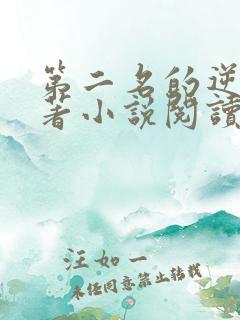 第二名的逆
著小說閱讀
汪如一
未经同意禁止转载